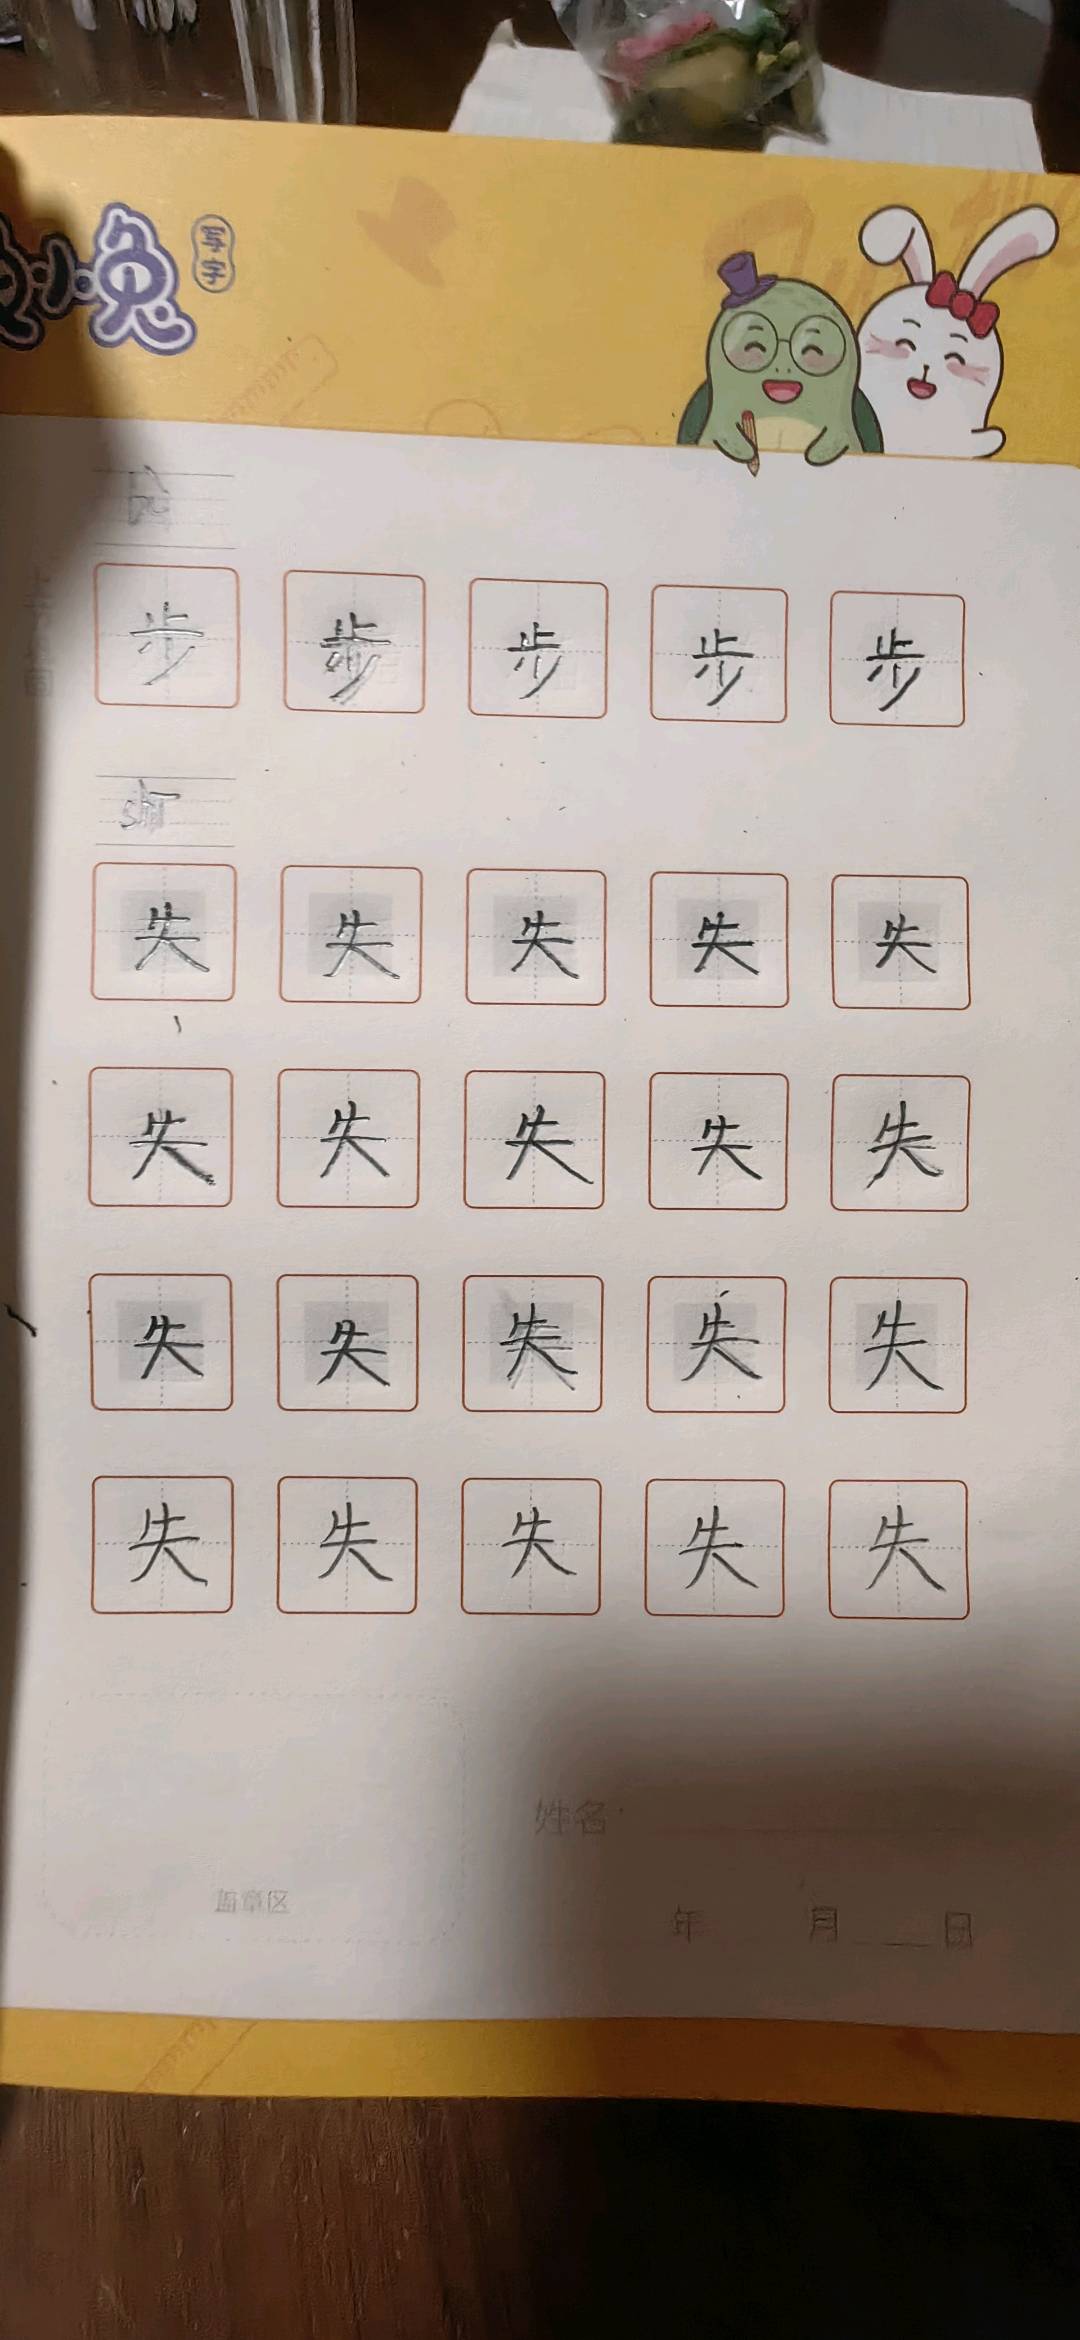 小兔
练字
bù
步 步 步 步 步
shī
失 失 失 失 失
失 失 失 失 失
失 失 失 失 失
失 失 失 失 失
姓名:
盖章区
年 月 日